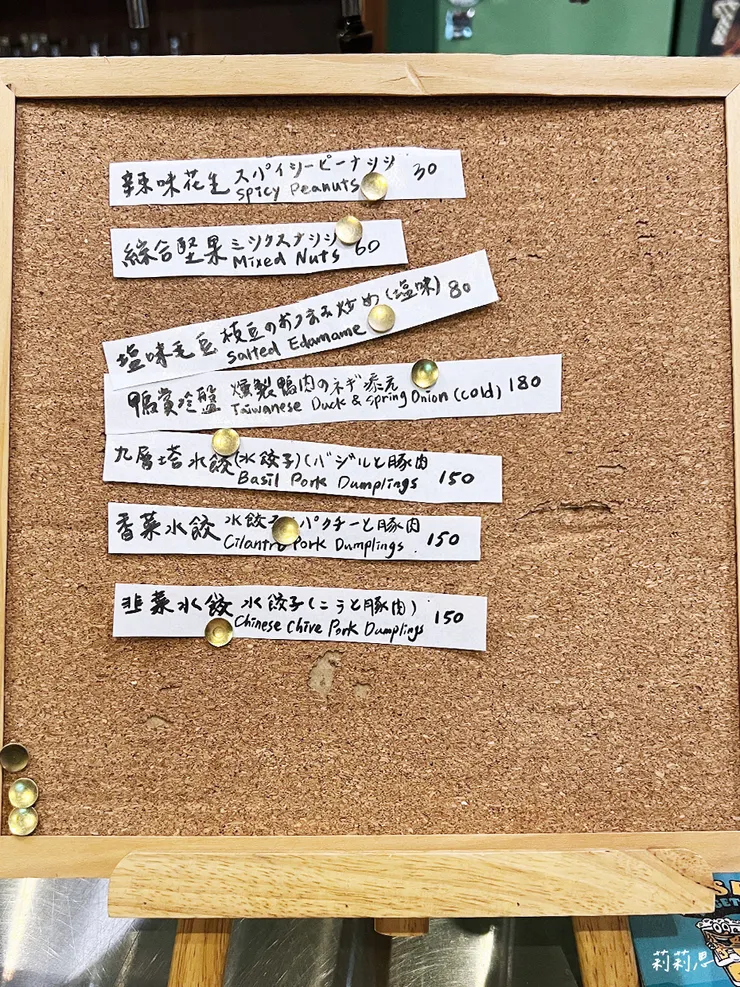 辣味花生 スパイシーピーナッツ 30
Spicy Peanuts
綜合堅果 ミックスナッツ 60
Mixed Nuts
塩味毛豆 枝豆のおつまみ炒め(塩味) 80
Salted Edamame
鴨賞冷盤 燻製鴨肉のネギ添え 180
Taiwanese Duck & Spring Onion (cold)
九層塔水餃(水餃子)(バジルと豚肉 150
Basil Pork Dumplings
香菜水餃 水餃子 パクチーと豚肉 150
Cilantro Pork Dumplings
韭菜水餃 水餃子(ニラと豚肉) 150
Chinese Chive Pork Dumplings
莉莉思